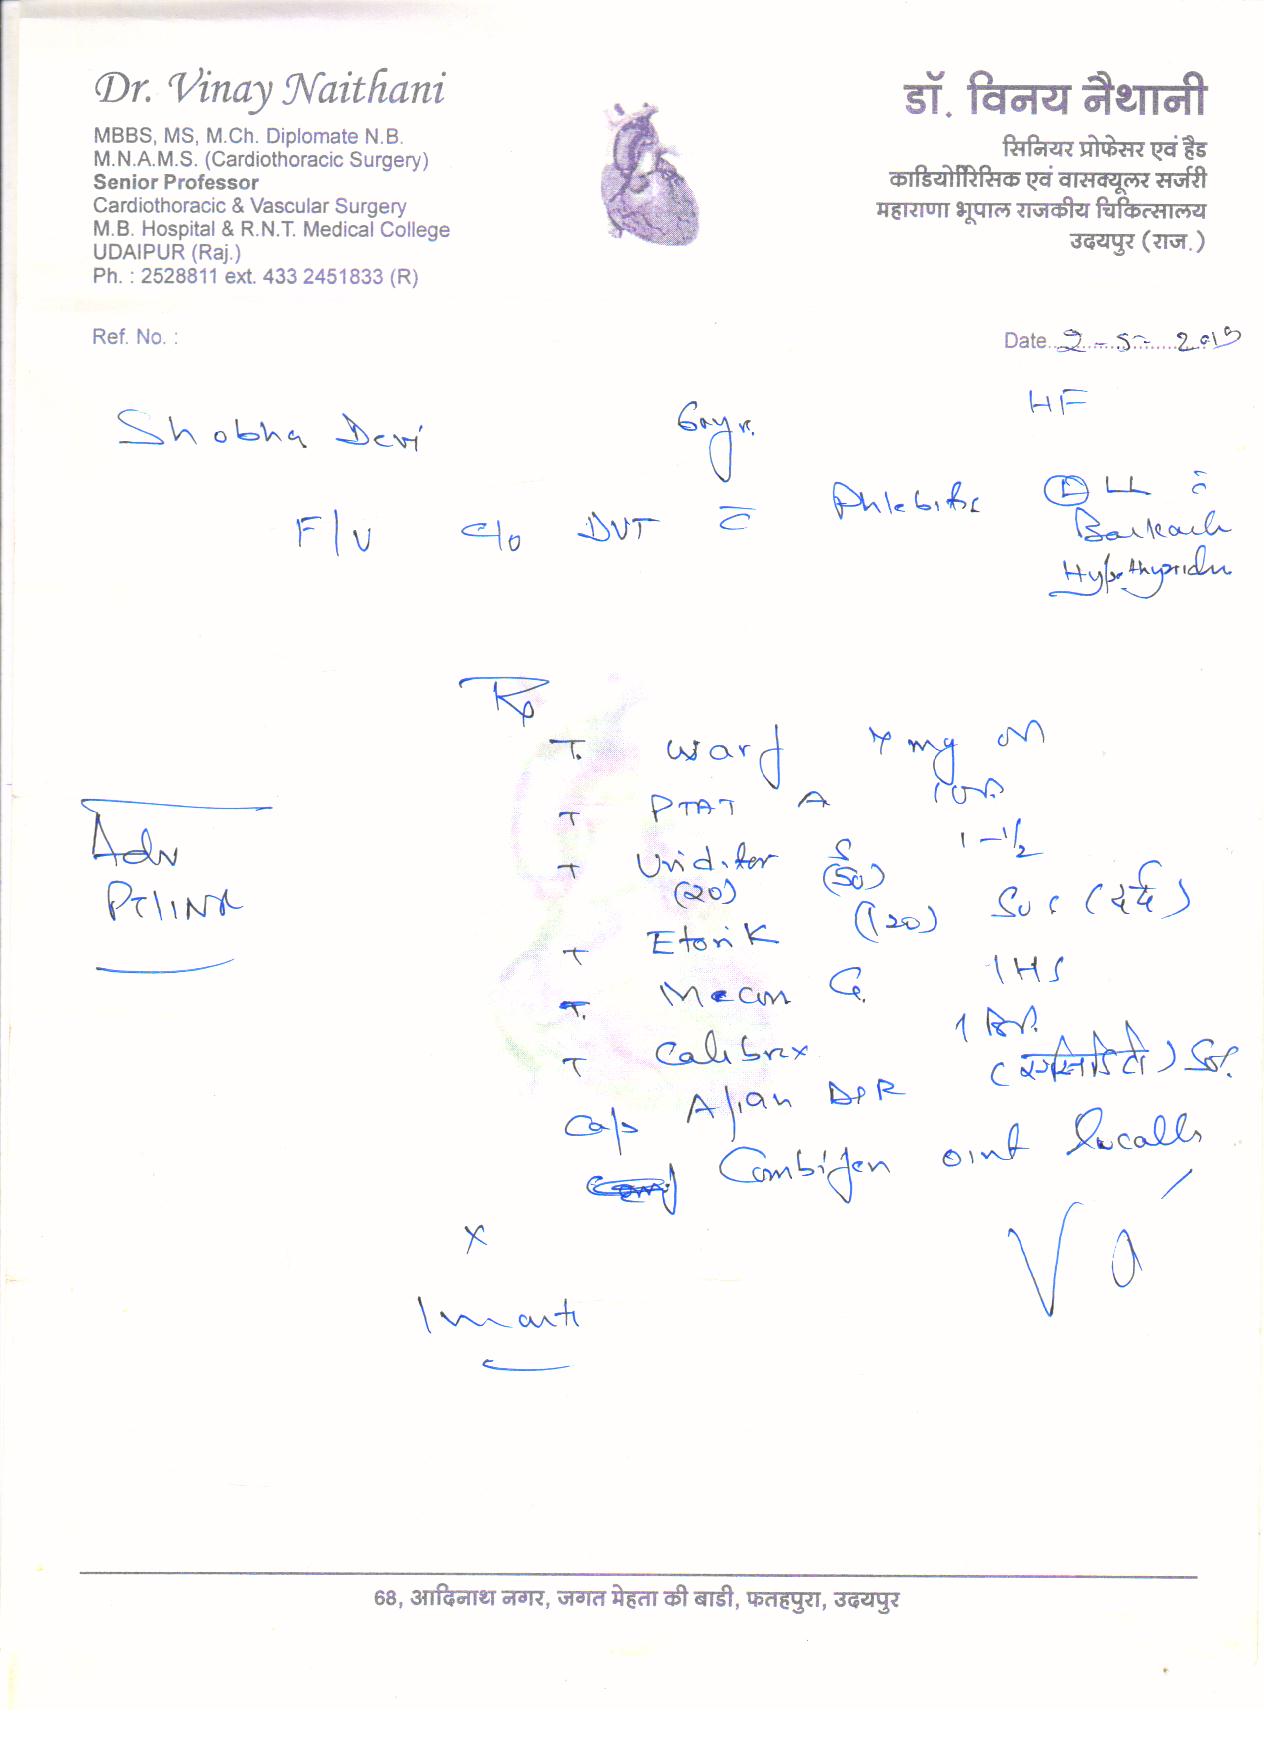 Dr. Vinay Naithani
MBBS, MS, M.Ch. Diplomate N.B.
M.N.A.M.S. (Cardiothoracic Surgery)
Senior Professor
Cardiothoracic & Vascular Surgery
M.B. Hospital & R.N.T. Medical College
UDAIPUR (Raj.)
Ph. : 2528811 ext. 433 2451833 (R)
डॉ. विनय नैथानी
सिनियर प्रोफेसर एवं हैड
काडियोरिसिक एवं वासक्यूलर सर्जरी
महाराणा भूपाल राजकीय चिकित्सालय
उदयपुर (राज.)
Ref. No. :
Date 2-5-2019
Shobha Devi HF
F/U c/o DVT c̄ Phlebitis Ⓛ LL c̄
Backach
Rx
T. Warf mg
T PTAT A
T Unid.ter S 1-1/2
(20) (50)
T Etorik (120) SOS (दर्द)
T. Mecon G. 1 HS
T Calibrex
Cap DSR
oint locally
Adv
PT/INR
x